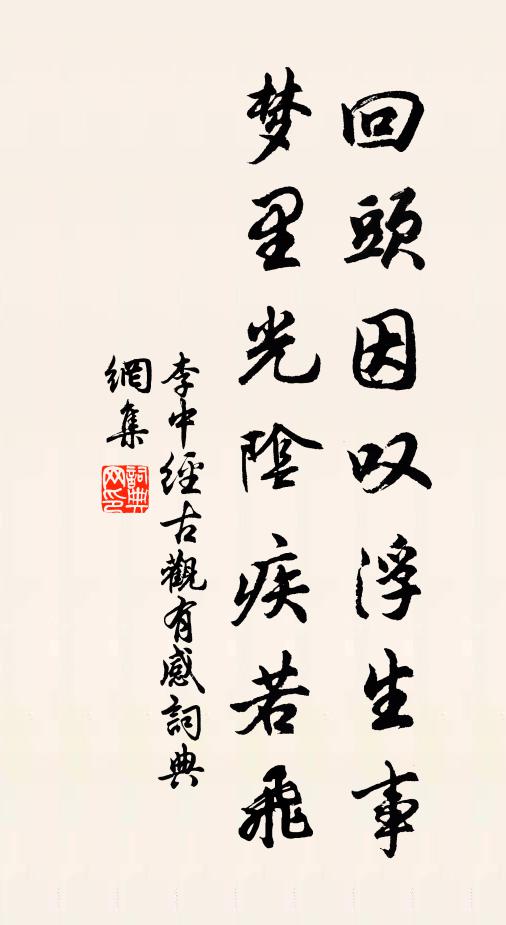 回頭因叹浮生事
梦里光陰疾若飛
李中經古觀有感詞典
網集
詞典網印